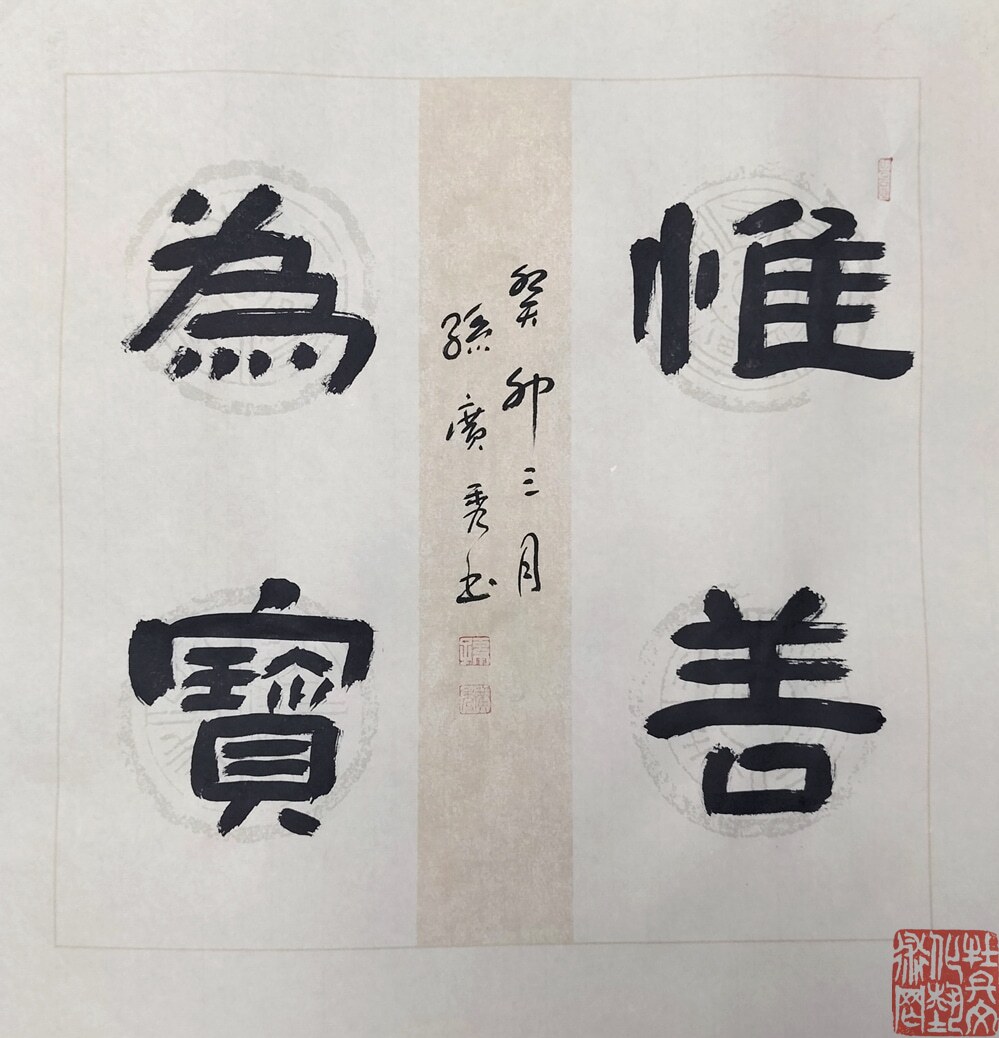 惟善
為寶
癸卯三月
孫廣秀书